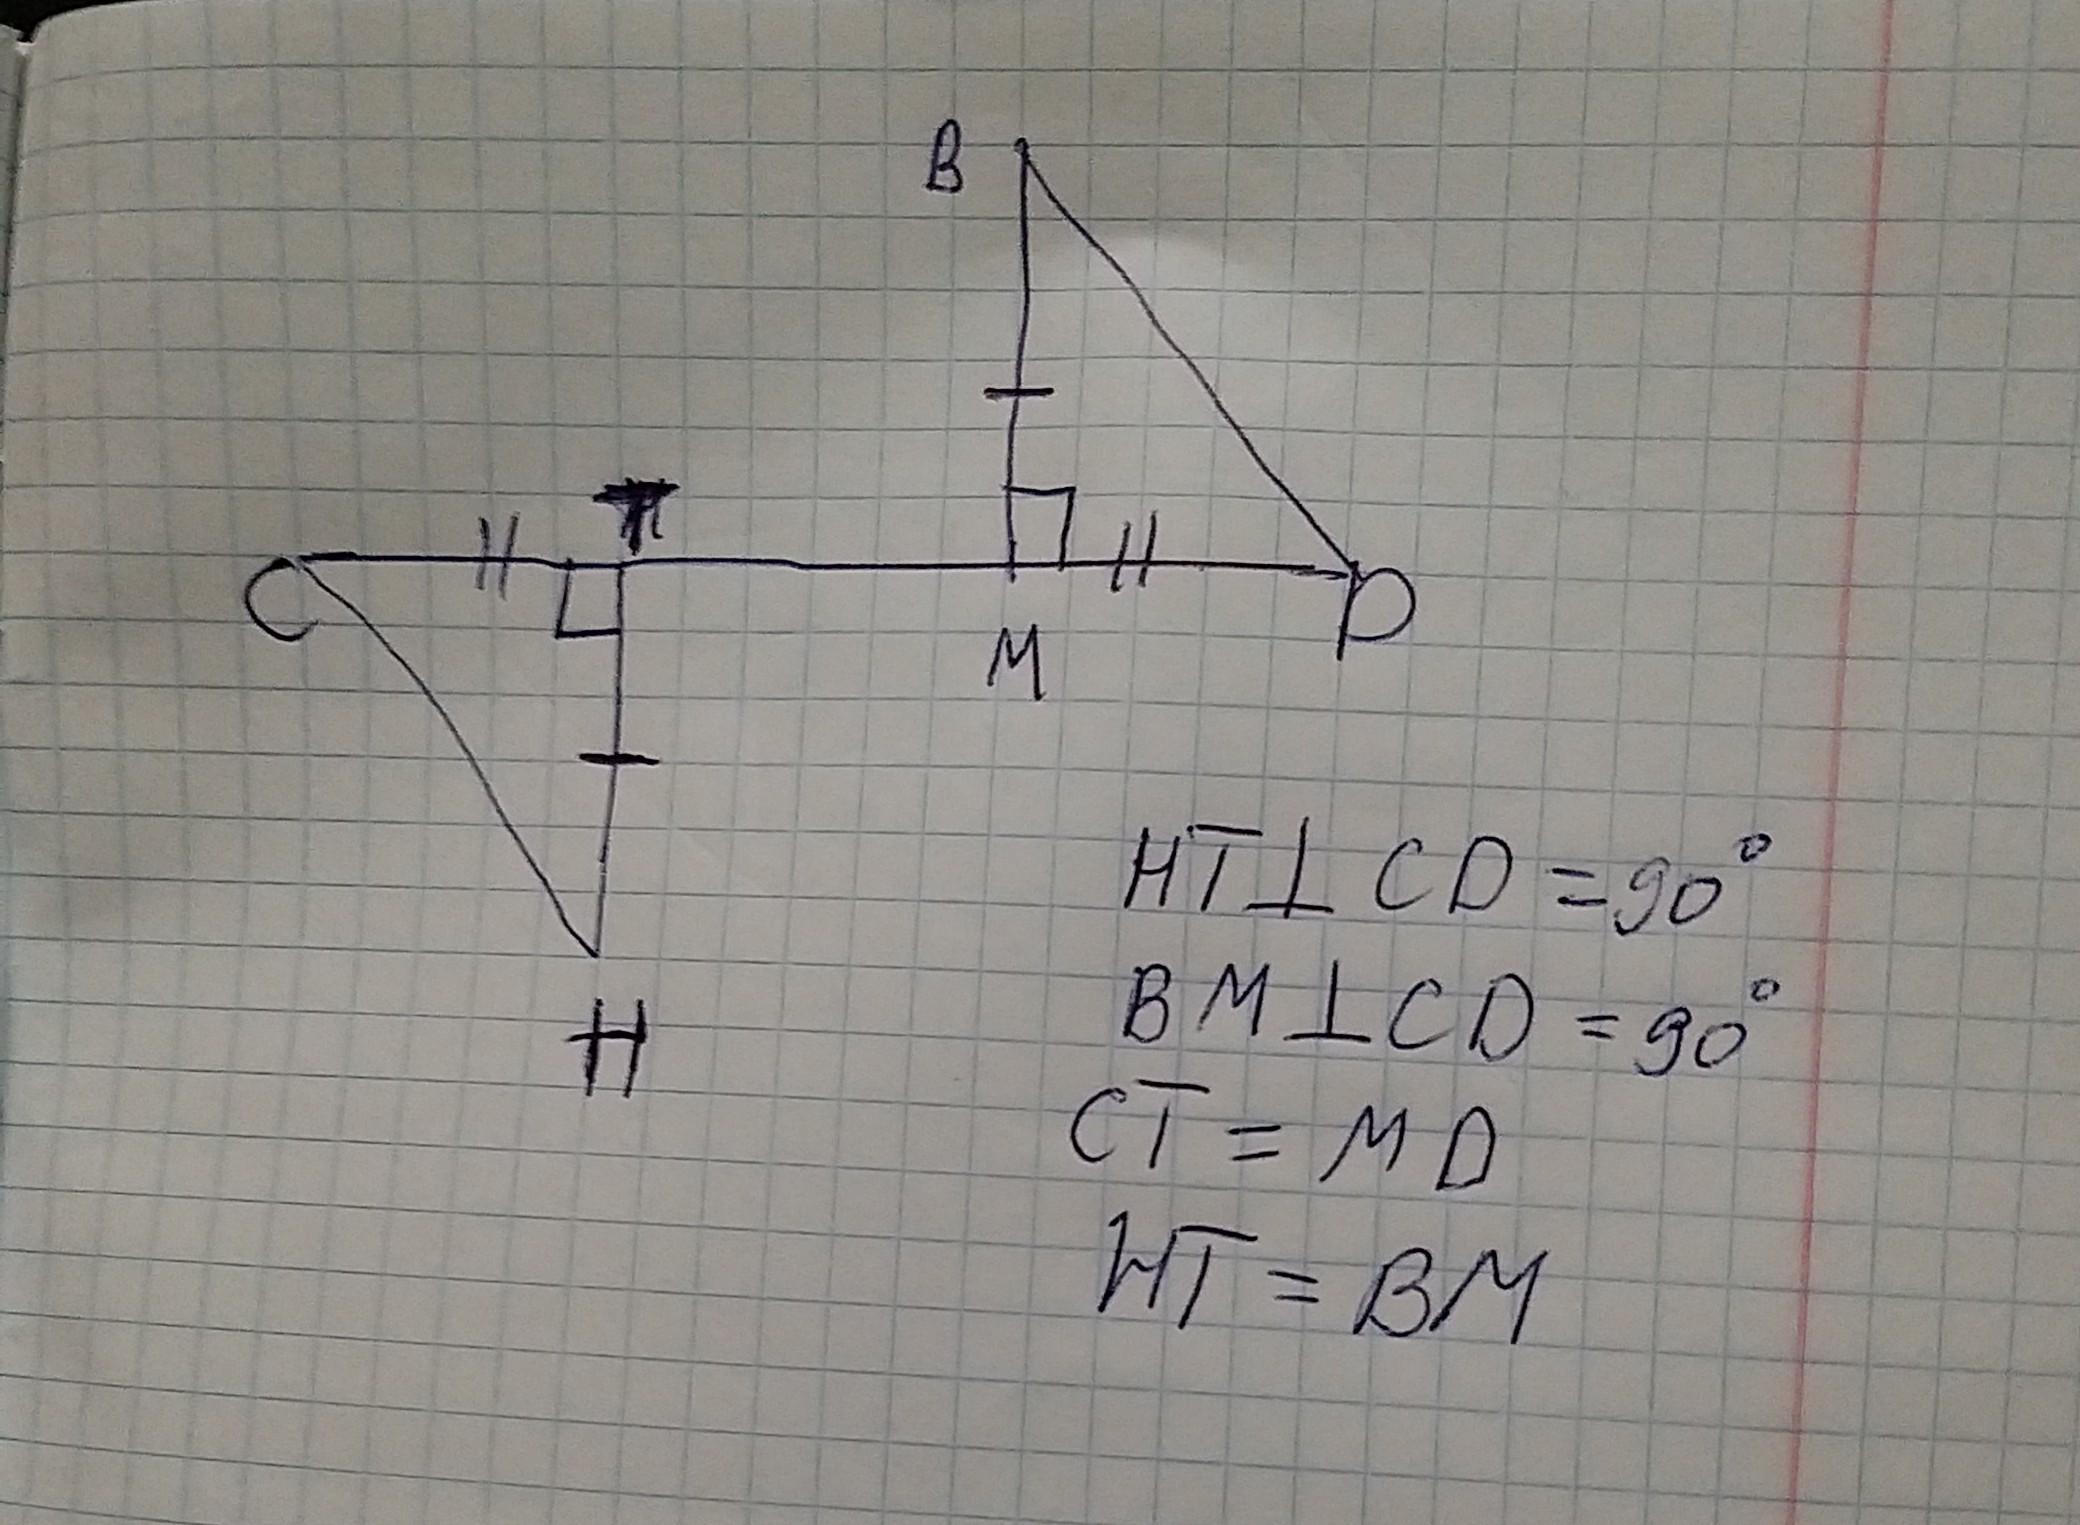 B
T
C
M
D
H
HT⊥CD=90°
BM⊥CD=90°
CT=MD
HT=BM